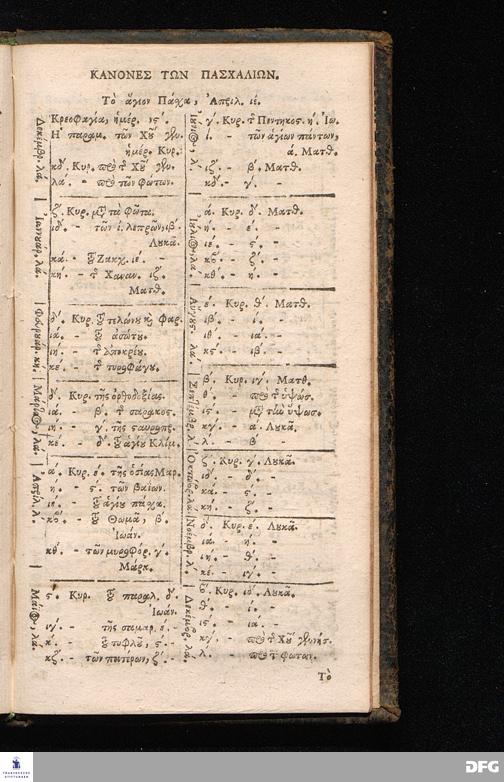 ΚΑΝΟΝΕΣ ΤΩΝ ΠΑΣΧΑΛΙΩΝ.
Τὸ ἅγιον Πάσχα, Ἀπριλ. ιέ.
Δεκεμβρ. λά.
Κρεοφαγία, ἡμέρ. νς΄.
Ἡ παραμ. τῶν Χῦ γλυ.
ἡμέρ. Κυρ.
κδ΄. Κυρ. πρὸ τ Χῦ γλυ.
λά. - πρὸ τῶν Φώτων.
Ἰαννουάρ. λα.
ζ. Κυρ. μετὰ τὰ Φῶτα.
ιδ΄. - τῶν ί. λεπρῶν, ιβ΄
Λουκᾶ.
κά. - Ζακχ. ιέ. -
κή. - τ Χαναν. ιζ.
Ματθ.
Φευρουάρ. κη.
δ΄. Κυρ. τελώνου κ Φαρ.
ιά. - ἀσώτου.
ιή. - τ Ἀποκρέου.
κέ. - τ τυροφάγου.
Μάρτιος, λα.
δ΄. Κυρ. τῆς ὀρθοδοξίας.
ιά. - β΄. τ σαρακος.
ιή. - γ΄. τῆς σταυροπρ.
κέ. - δ΄. ἁγίου Κλίμ.
Ἀπριλ. λ.
ά. Κυρ. έ. τῆς ὁσίας Μαρ.
ή. - ς΄. τῶν βαΐων.
ιέ. - ἁγίου πάσχα.
κβ΄. - Θωμᾶ, β.
Ἰωάν.
κθ΄. - τῶν μυροφόρ. γ΄.
Μαρκ.
Μάιος, λα.
ς. Κυρ. παραλ. δ΄.
Ἰωάν.
ιγ΄. - τῆς σαμαρ. έ. -
κ. - τυφλοῦ, ς. -
κζ. - τῶν πατέρων, ζ. -
Ἰούνιος, λ.
γ΄. Κυρ. τ Πεντηκος. ή. Ἰω.
ί. - τῶν ἁγίων πάντων,
ά. Ματθ.
ιζ. - β΄. Ματθ.
κδ΄. - γ΄. -
Ἰούλιος, λα.
ά. Κυρ. δ΄. Ματθ.
ή. - έ. -
ιε. - ς΄. -
κβ΄. - ζ΄. -
κθ΄. - ή. -
Αὔγους. λα.
έ. Κυρ. θ΄. Ματθ.
ιβ΄. - ί. -
ιθ΄. - ιά. -
κς΄. - ιβ. -
Σεπτεμβρ. λ.
β. Κυρ. ιγ΄. Ματθ.
θ΄. - πρὸ τ ὑψώσ.
ις΄. - μετὰ τὴν ὕψωσ.
κγ΄. - α΄. Λουκᾶ.
λ΄. - β΄ -
Ὀκτώβρ. λά.
ζ. Κυρ. γ΄. Λουκᾶ.
ιδ΄. - δ΄. -
κά. - ς. -
κή. - ζ. -
Νοέμβρ. λ.
δ΄. Κυρ. έ. Λουκᾶ.
ιά. - ή. -
ιή. - θ΄. -
κέ. - ιγ΄. -
Δεκέμβρ. λα.
β΄. Κυρ. ιδ΄. Λουκᾶ.
θ΄. - ί. -
ις. - ιά. -
κγ΄. - πρὸ τ Χῦ γλυνήσ.
λ. - πρὸ τ φώτων.
Τὸ
FRANCKESCHE STIFTUNGEN
DFG